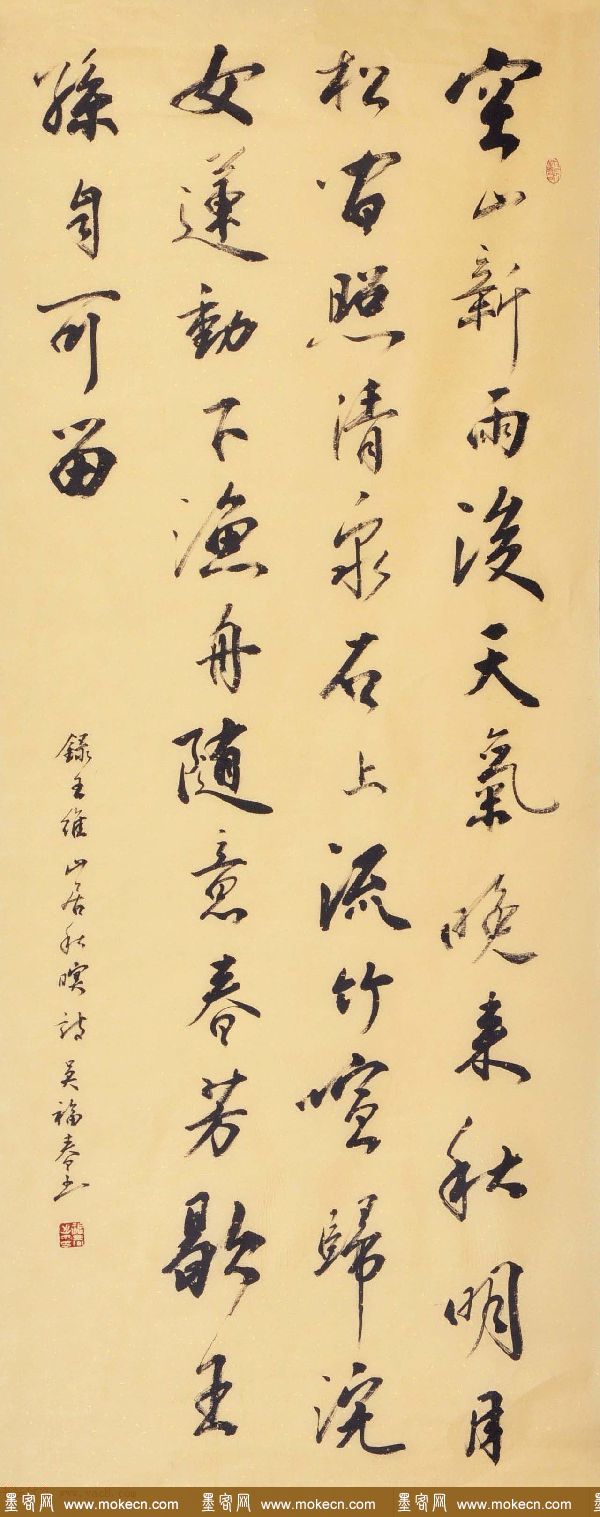 空山新雨後天氣晚来秋明月
松间照清泉石上流竹喧歸浣
女蓮動下漁舟随意春芳歇王
孫自可留
録王維山居秋暝詩吴福春书
墨客网 www.mokecn.com 墨客网 www.mokecn.com 墨客网 www.mokecn.com